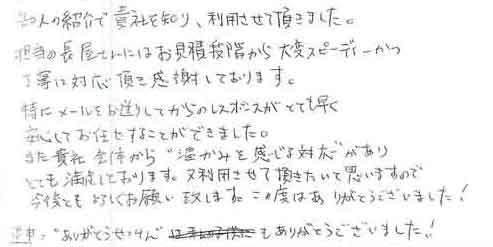 知人の紹介で貴社を知り、利用させて頂きました。
担当の長屋さんにはお見積段階から大変スピーディーかつ
丁寧に対応頂き感謝しております。
特にメールをお送りしてからのレスポンスがとても早く
安心してお任せすることができました。
また貴社全体から“温かみを感じる対応”があり
とても満足しております。又利用させて頂きたいと思いますので
今後とも宜しくお願い致します。この度はありがとうございました!
“ありがとうせっけん” もありがとうございました!!